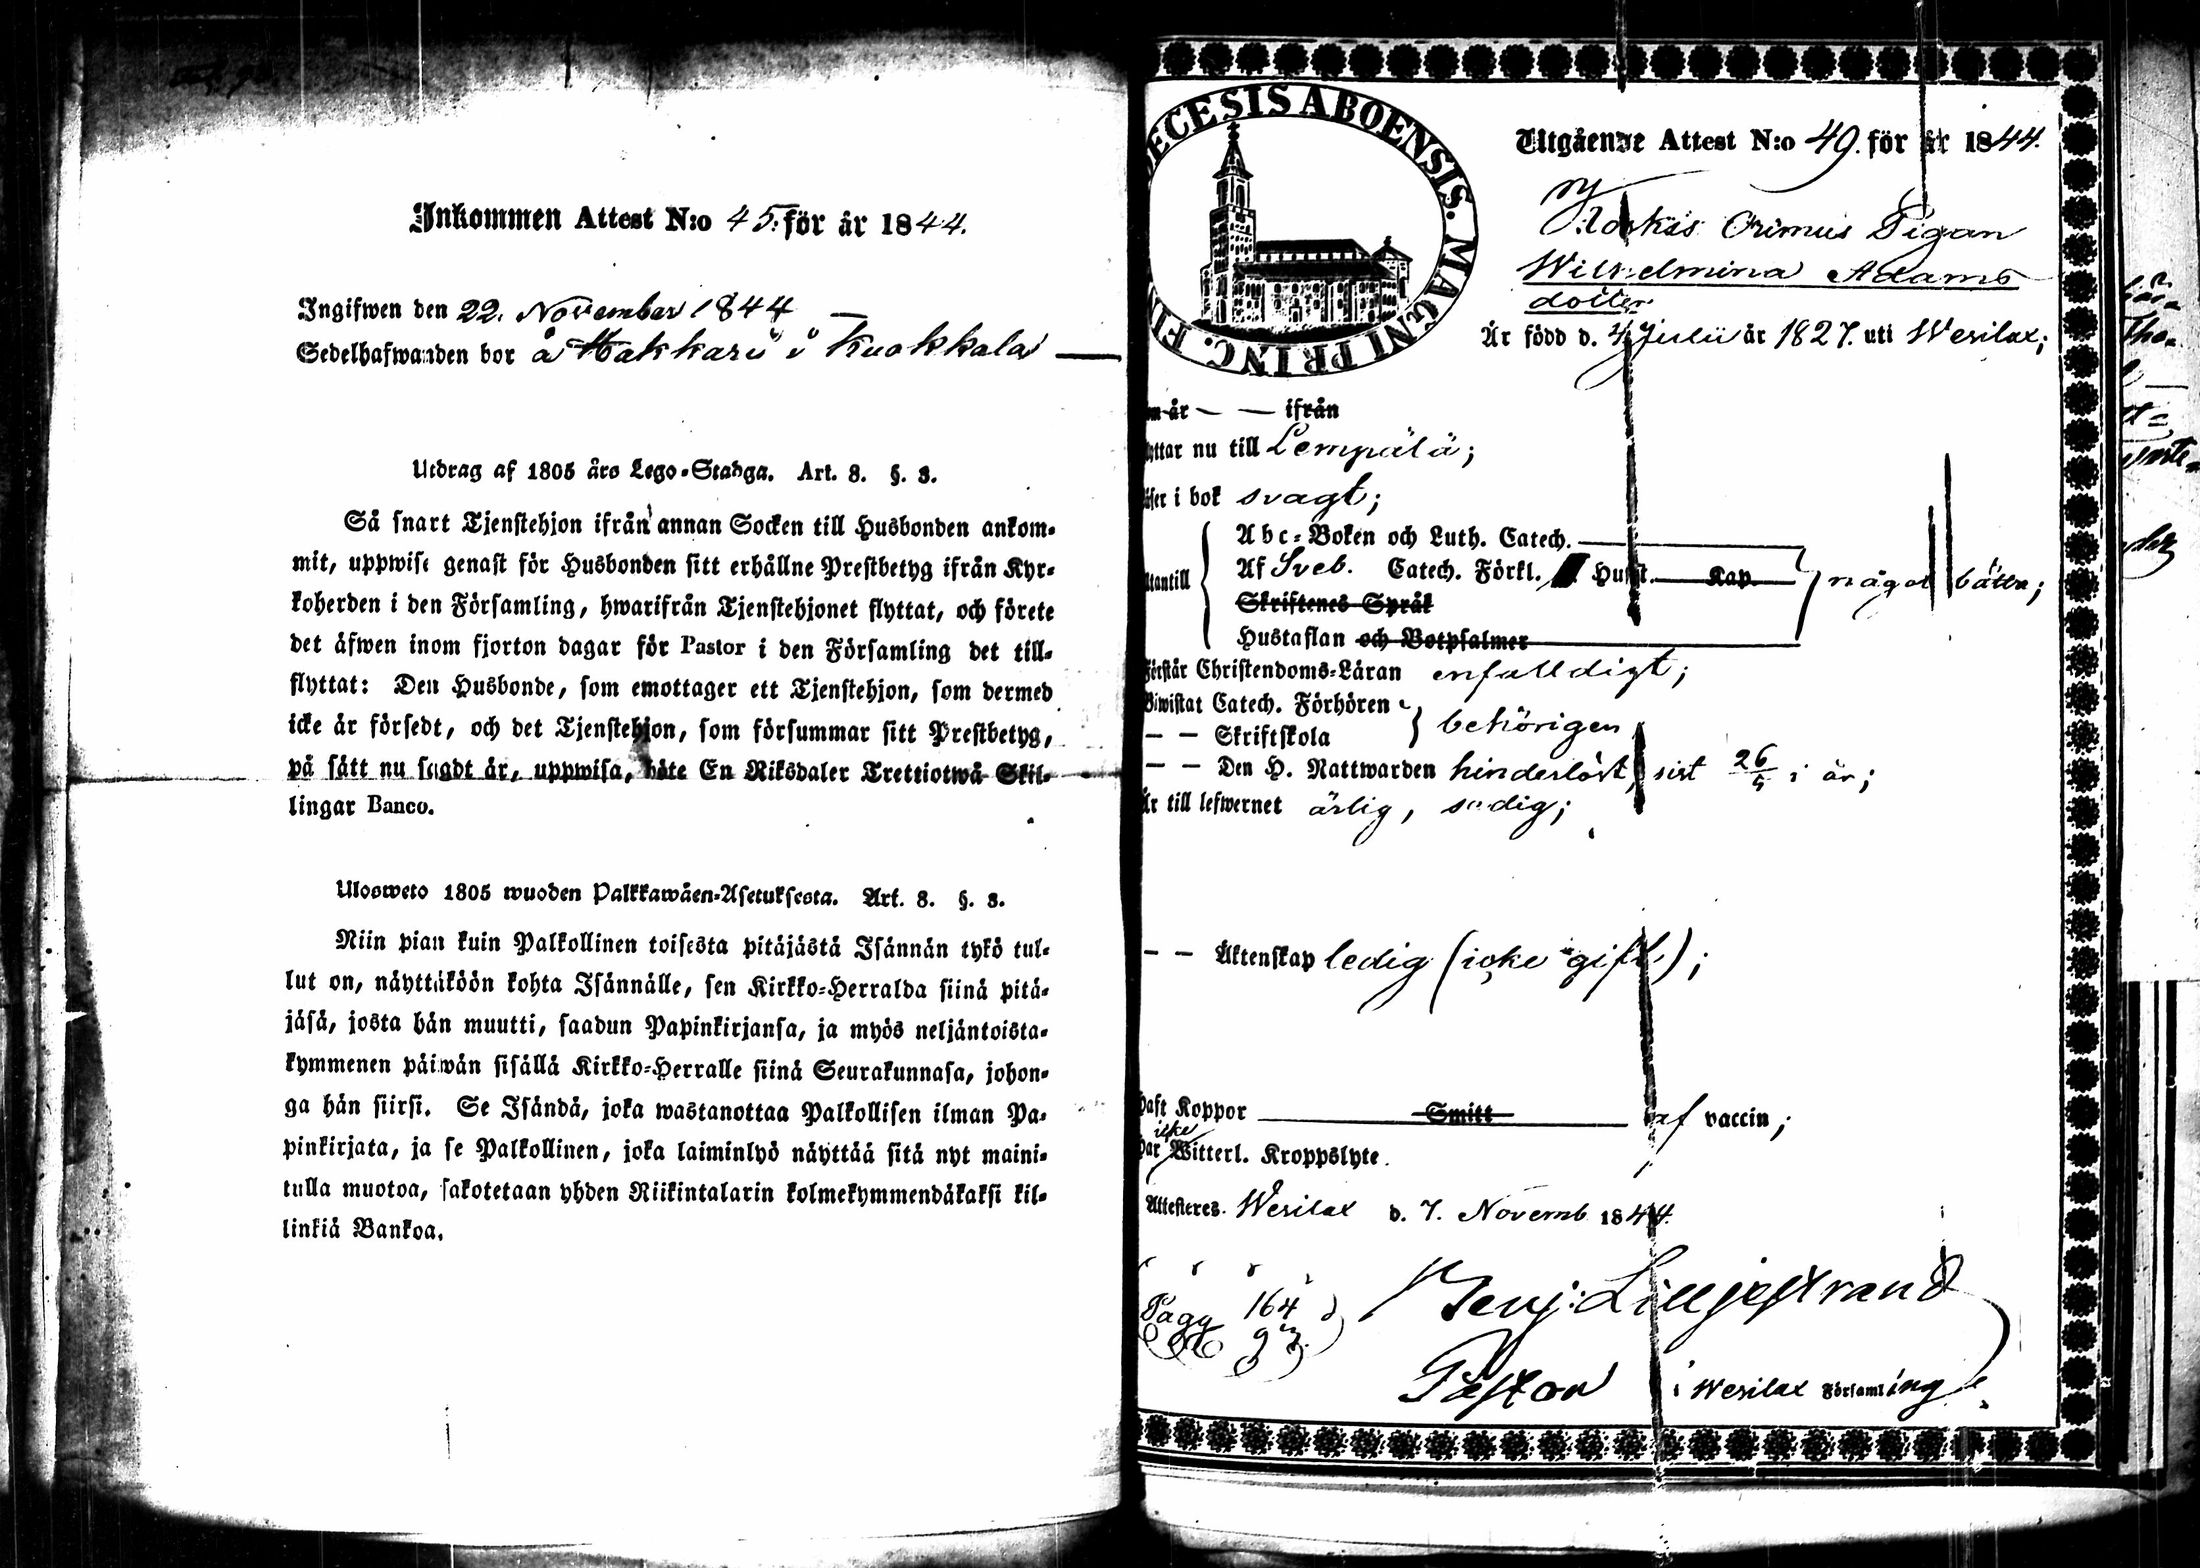 Inkommen Attest N:o 45. för år 1844.
Ingifwen den 22. November 1844
Sedelhafwanden bor å Hakkari i Kuokkala
Utdrag af 1805 års Lego-Stadga. Art. 8. §. 3.
Så snart Tjenstehjon ifrån annan Socken till Husbonden ankom-
mit, uppwise genast för Husbonden sitt erhållne Prestbetyg ifrån Kyr-
koherden i den Församling, hwarifrån Tjenstehjonet flyttat, och förete
det äfwen inom fjorton dagar för Pastor i den Församling det till-
flyttat: Den Husbonde, som emottager ett Tjenstehjon, som dermed
icke är försedt, och det Tjenstehjon, som försummar sitt Prestbetyg,
på sätt nu sagdt är, uppwisa, böte En Riksdaler Trettiotwå Skil-
lingar Banco.
Ulosweto 1805 wuoden Palkkawäen-Asetuksesta. Art. 8. §. 3.
Niin pian kuin Palkollinen toisesta pitäjästä Isännän tykö tul-
lut on, näyttäköön kohta Isännälle, sen Kirkko-Herralda siinä pitä-
jäsä, josta hän muutti, saadun Papinkirjansa, ja myös neljäntoista-
kymmenen päiwän sisällä Kirkko-Herralle siinä Seurakunnasa, johon-
ga hän siirsi. Se Isändä, joka wastanottaa Palkollisen ilman Pa-
pinkirjata, ja se Palkollinen, joka laiminlyö näyttää sitä nyt maini-
tulla muotoa, sakotetaan yhden Riikintalarin kolmekymmendäkaksi kil-
linkiä Bankoa.
ECESIS ABOENSIS. MAGNI PRINC. FI
Utgående Attest N:o 49. för år 1844.
Pigan
Wilhelmina Adams
dotter
Är född d. 4 Julii år 1827. uti Wesilax;
år — — ifrån
yttar nu till Lempälä;
äser i bok svagt;
Utantill
Abc-Boken och Luth. Catech.
Af Sveb. Catech. Förkl. Hust. Kap. något bättre;
Skriftenes Språk
Hustaflan och Botpsalmer
Förstår Christendoms-Läran enfalldigt;
Biwistat Catech. Förhören
— — Skriftskola behörigen
— — Den H. Nattwarden hinderlöst, sist 26/5 i år;
Är till lefwernet ärlig, sedig;
— — Äktenskap ledig (icke gift.);
Haft Koppor Smitt af vaccin;
icke
Har Witterl. Kroppslyte.
Attesteres. Wesilax d. 7. Novemb 1844.
Pagg 164
Benj: Liljestrand
Pastor i Wesilax Församling